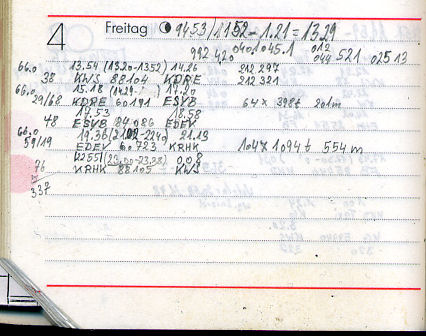 4 Freitag 9453/1152-1.21=13.29
992 420 0401045.1 012 044 521 02513
66.0 13.54 (13.20-1352) 14.26 212 297
38 KWS 88104 KDRE 212 321
66.0 15.18 17.20
29/68 KDRE 60191 ESVB 64x 398t 201m
17.53 18.58
48 ESVB 84086 EDEV
66.0 19.36 21.13
59/19 EDEV 60723 KRHK 104x 1094t 554m
2255 (23.00-23.38) 0.08
76 KRHK 88105 KWS
337